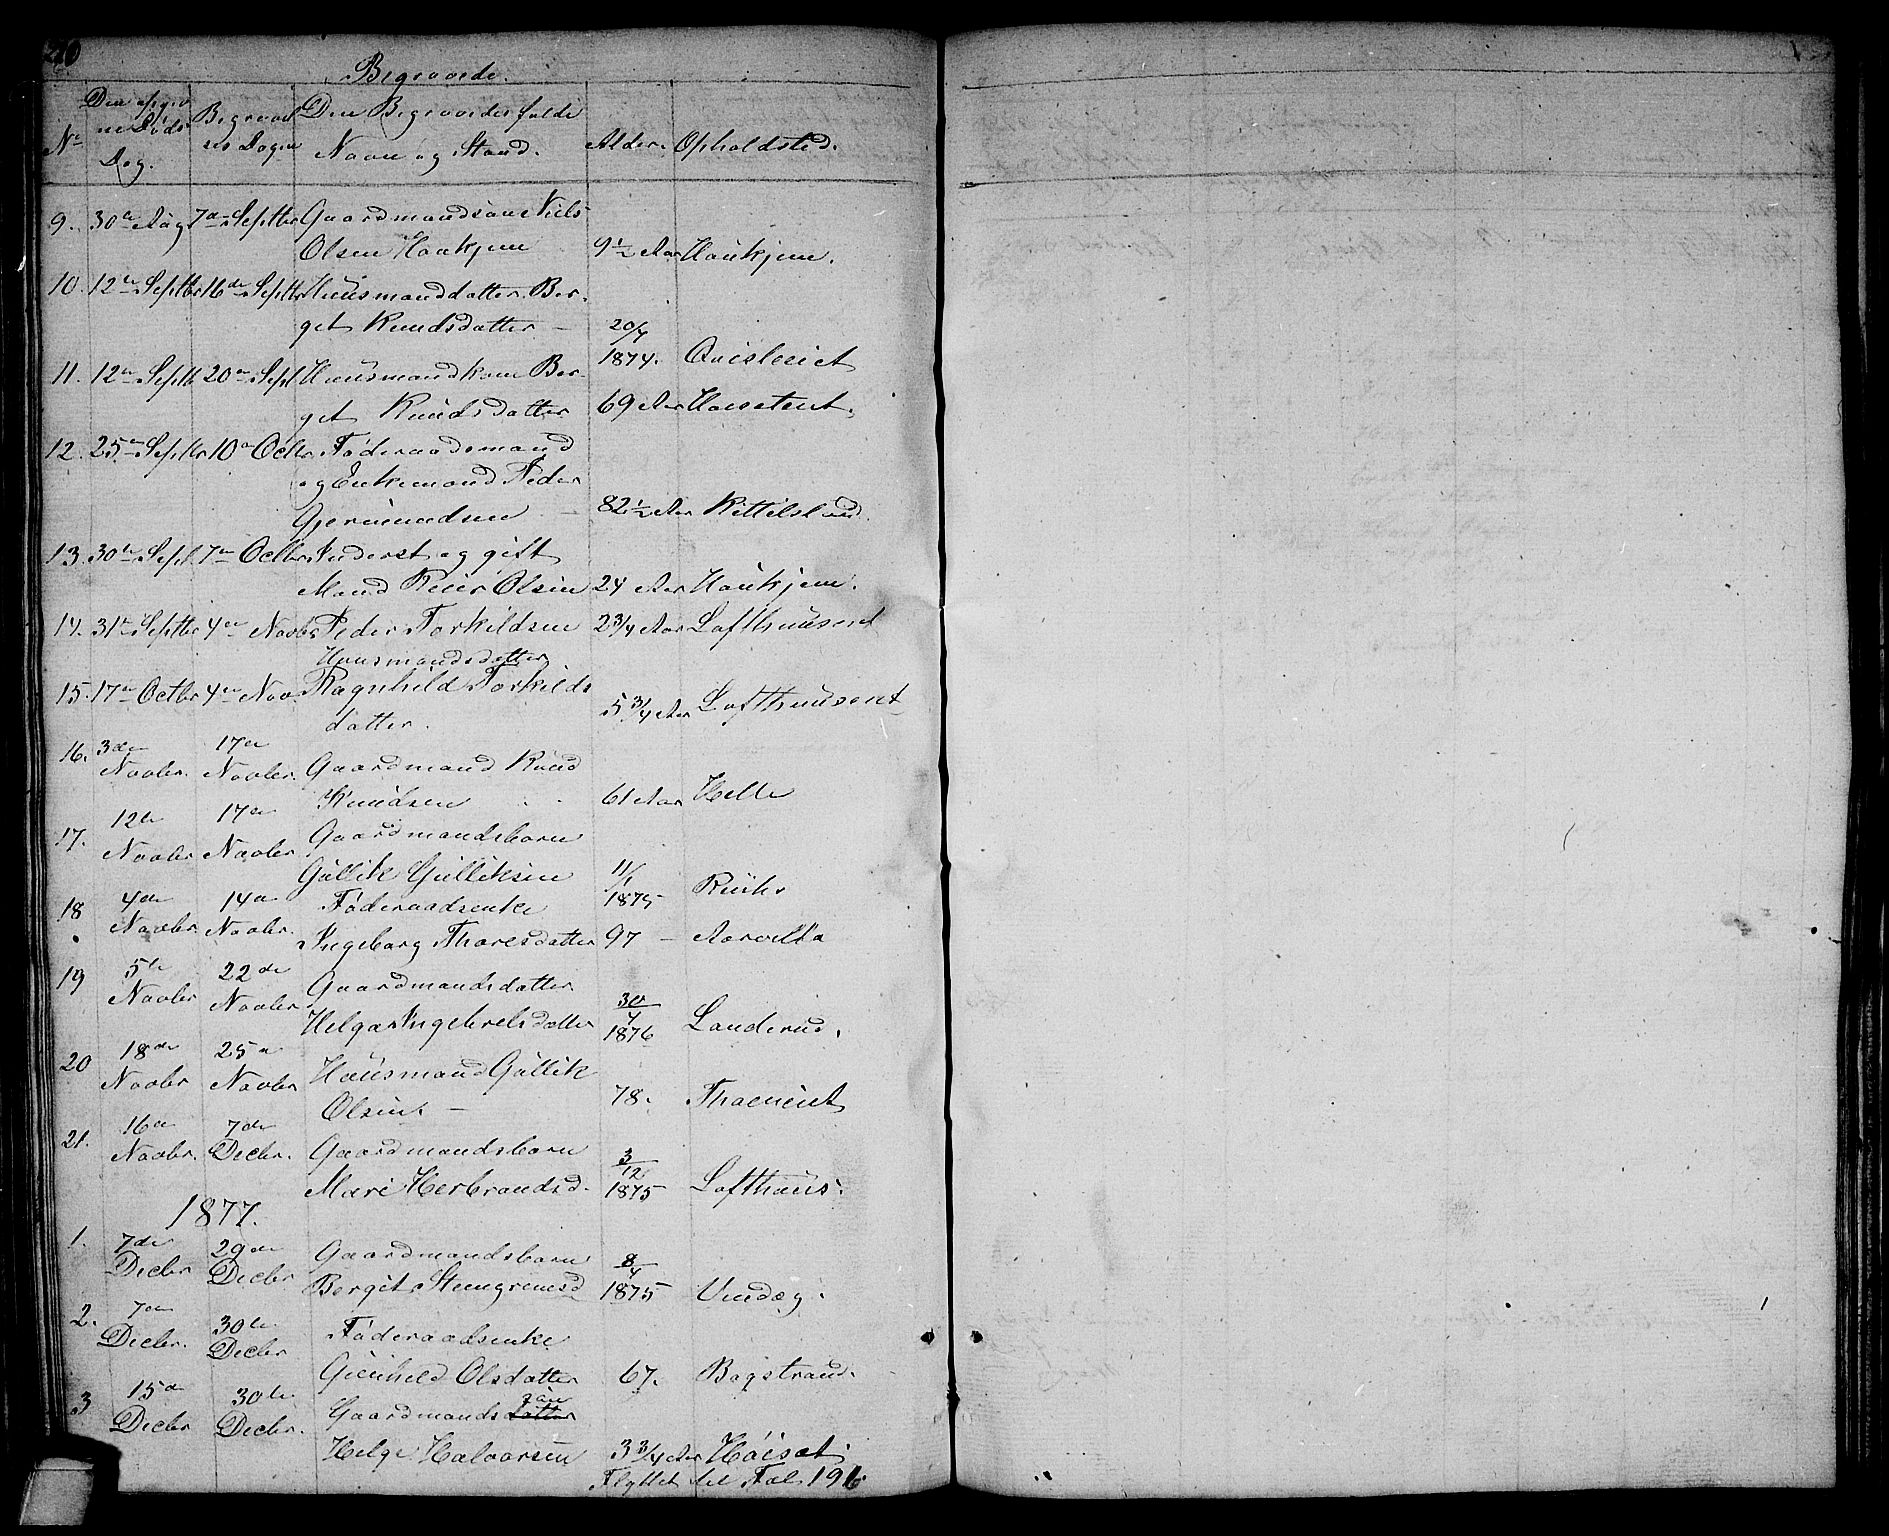 Begravede.
No Den opgivne Døds Dag. Begravelses Dagen Den Begravedes fulde Navn og Stand. Alder. Opholdsted.
9. 30te Aug 7de Septbr Gaardmandssøn Niels
Olsen Haukjem 9 1/2 Aar Haukjem.
10. 12te Septbr 16de Septbr Huusmanddatter Ber-
get Knudsdatter – 20/7
1874. Qvisleeiet
11. 12te Septb 20de Sept Huusmandkone Ber-
get Knudsdatter 69 Aar
12. 25de Septbr 10de Octbr Føderaadsmand
og Enkemand Peder
Gjermundsen – 82 1/2 Aar Kittilsland.
13. 30te Sept 7de Octbr Inderst og gift
Mand Peder Olsen 24 Aar Haukjem.
14. 31te Septbr 4de Novbr Peder Torkildsen 2 3/4 Aar Lofthuuseiet
Huusmandsdatter
15. 17de Octbr 4de Nov. Ragnhild Torkilds
datter. 5 3/4 Aar Lofthuuseiet
16. 3de Novbr. 17de Novbr. Gaardmand Knud
Knudsen 61 Aar Helle
17. 12te Novbr 17de Novbr Gaardmandsbarn
Gullik Gulliksen 11/1
1875
18 4de Novbr 14de Novbr. Føderaadsenke
Ingeborg Thoresdatter 97 – Aarvelta
19 5te Novbr 22de Novbr Gaardmandsdatter
Helga Ingebretsdatter 30/4
1876 Landerud.
20 18de Novbr 25de Novbr Huusmand Gullik
Olsen. – 78.
21. 16de Novbr. 7de Decbr. Gaardmandsbarn
Mari Herbrandsd. 3/12
1875 Lofthuus.
1877.
1. 7de Decbr 29de Decbr Gaardmandsbarn
Bergit Steingrimsd 8/4
1875 Vindeg.
2. 7de Decbr. 30te Decbr Føderaadsenke
Gunhild Olsdatter 67. Bagstrand.
3 15de Decbr 30te Decbr. Gaardmandsdatter søn
Helge Halvorsen 3 3/4 Aar Høiset.
Flyttet til Fol. 196